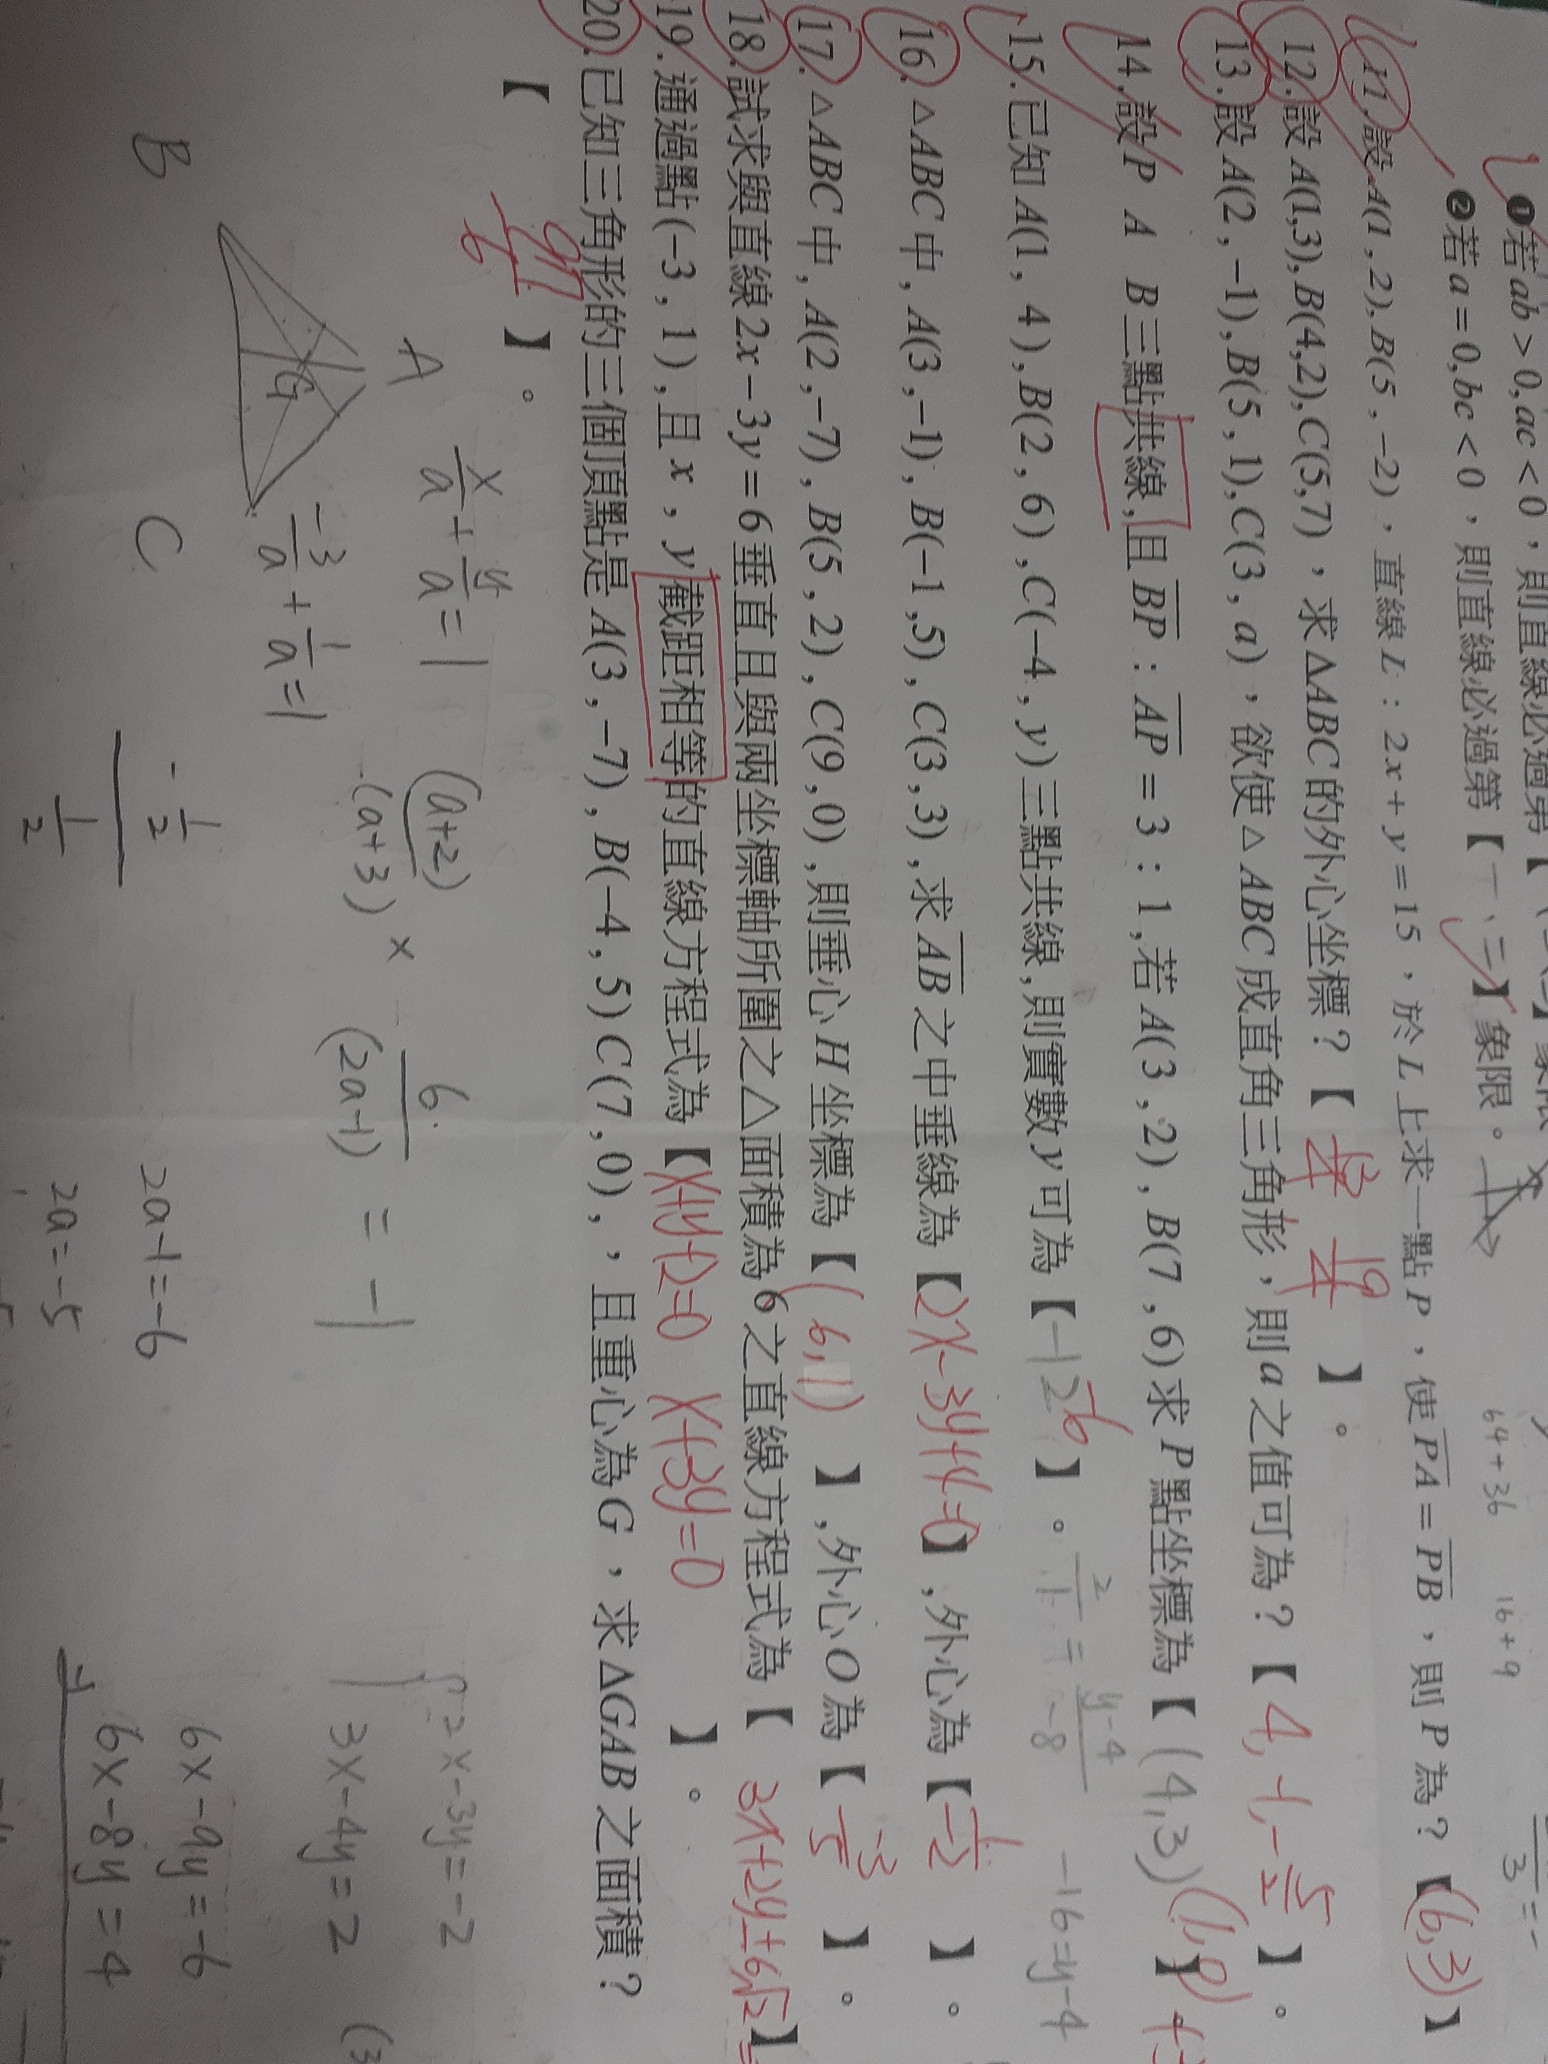 ❶若ab>0,ac<0，則直線必過第【
❷若a=0,bc<0，則直線必過第【一、二】象限。
11.設A(1,2),B(5,-2)，直線L：2x+y=15，於L上求一點P，使PA=PB，則P為？【(6,3)】
12.設A(1,3),B(4,2),C(5,7)，求△ABC的外心坐標？【13/4 19/4】。
13.設A(2,-1),B(5,1),C(3,a)，欲使△ABC成直角三角形，則a之值可為？【4,-1,-5/2】。
14.設P A B三點共線,且BP：AP=3：1,若A(3,2),B(7,6)求P點坐標為【(4,3)(1,0)】
15.已知A(1,4),B(2,6),C(-4,y)三點共線,則實數y可為【-12 -6】。
16.△ABC中,A(3,-1),B(-1,5),C(3,3),求AB之中垂線為【2x-3y+4=0】,外心為【 】。
17.△ABC中,A(2,-7),B(5,2),C(9,0),則垂心H坐標為【(6,1)】,外心O為【 】。
18.試求與直線2x-3y=6垂直且與兩坐標軸所圍之△面積為6之直線方程式為【3x+2y±6√2】
19.通過點(-3,1),且x,y截距相等的直線方程式為【x+y+2=0 x+3y=0 】。
20.已知三角形的三個頂點是A(3,-7),B(-4,5)C(7,0)，且重心為G，求△GAB之面積？
【 97/6 】。
64+36
16+9
2/1=y-4/-8
-16=y-4
A
B
C
G
x/a+y/a=1
-3/a+1/a=1
(a+2)
-(a+3)
×
6
(2a-1)
=-1
-1/2
1/2
2a-1=-6
2a=-5
2x-3y=-2
3x-4y=2
6x-9y=-6
6x-8y=4